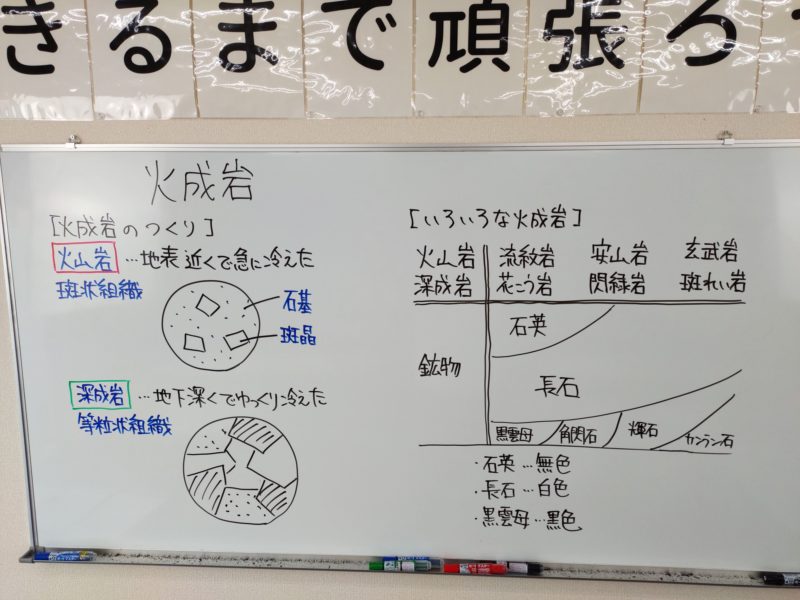 きるまで頑張ろ
火成岩
[火成岩のつくり]
火山岩…地表近くで急に冷えた
斑状組織
石基
斑晶
深成岩…地下深くでゆっくり冷えた
等粒状組織
[いろいろな火成岩]
火山岩 流紋岩 安山岩 玄武岩
深成岩 花こう岩 閃緑岩 斑れい岩
鉱物
石英
長石
黒雲母 角閃石 輝石 カンラン石
・石英…無色
・長石…白色
・黒雲母…黒色